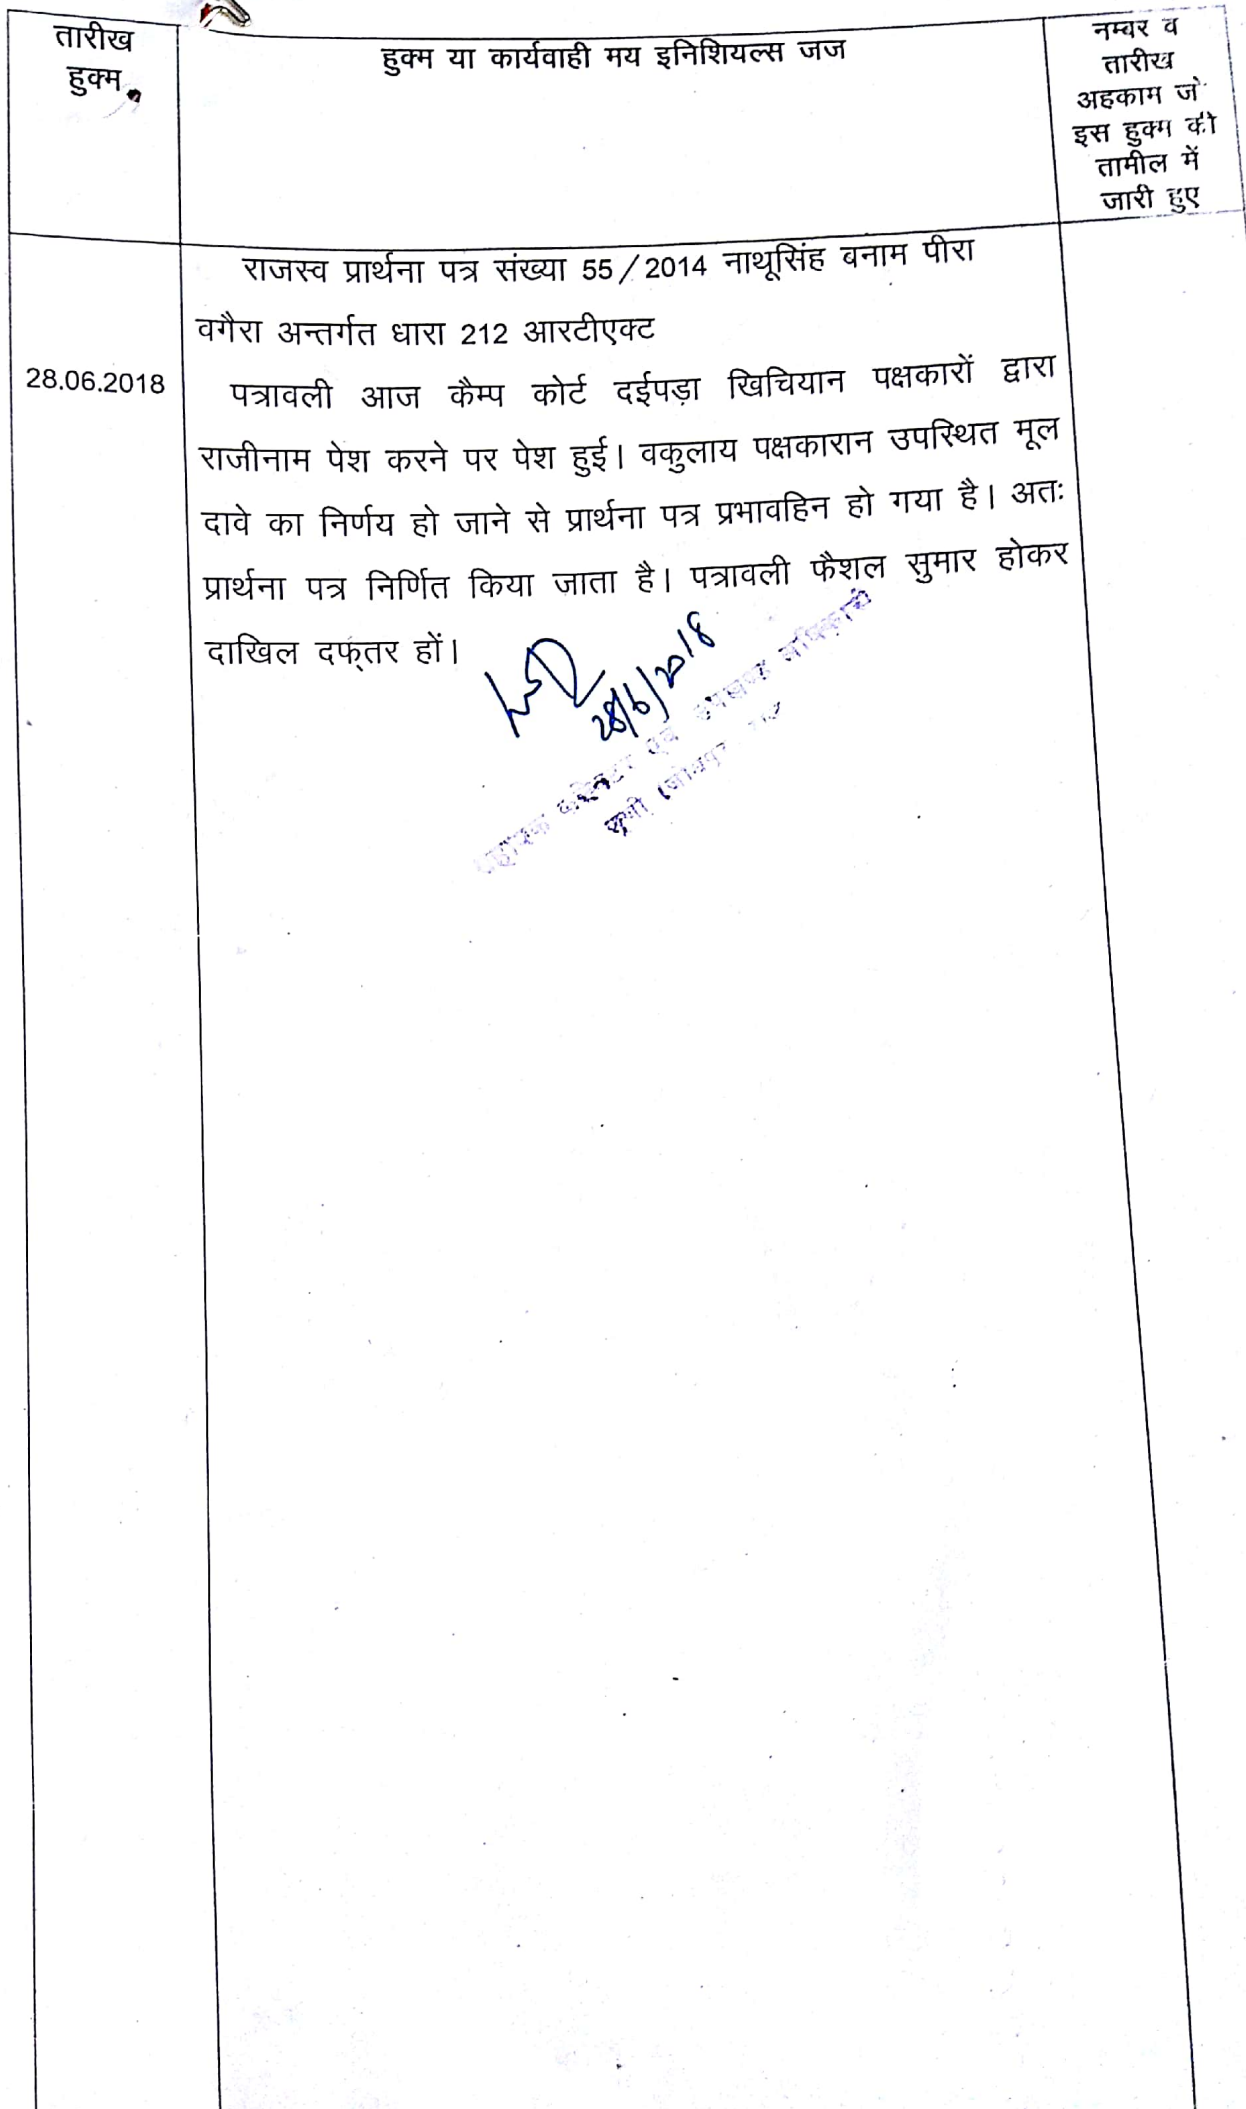 तारीख
हुक्म
हुक्म या कार्यवाही मय इनिशियल्स जज
नम्बर व
तारीख
अहकाम जो
इस हुक्म की
तामील में
जारी हुए
राजस्व प्रार्थना पत्र संख्या 55/2014 नाथूसिंह बनाम पीरा
वगैरा अन्तर्गत धारा 212 आरटीएक्ट
28.06.2018
पत्रावली आज कैम्प कोर्ट दईपड़ा खिचियान पक्षकारों द्वारा
राजीनाम पेश करने पर पेश हुई। वकुलाय पक्षकारान उपस्थित मूल
दावे का निर्णय हो जाने से प्रार्थना पत्र प्रभावहिन हो गया है। अतः
प्रार्थना पत्र निर्णित किया जाता है। पत्रावली फैशल सुमार होकर
दाखिल दफ्तर हों।
28/6/2018
एवं उपखण्ड अधिकारी